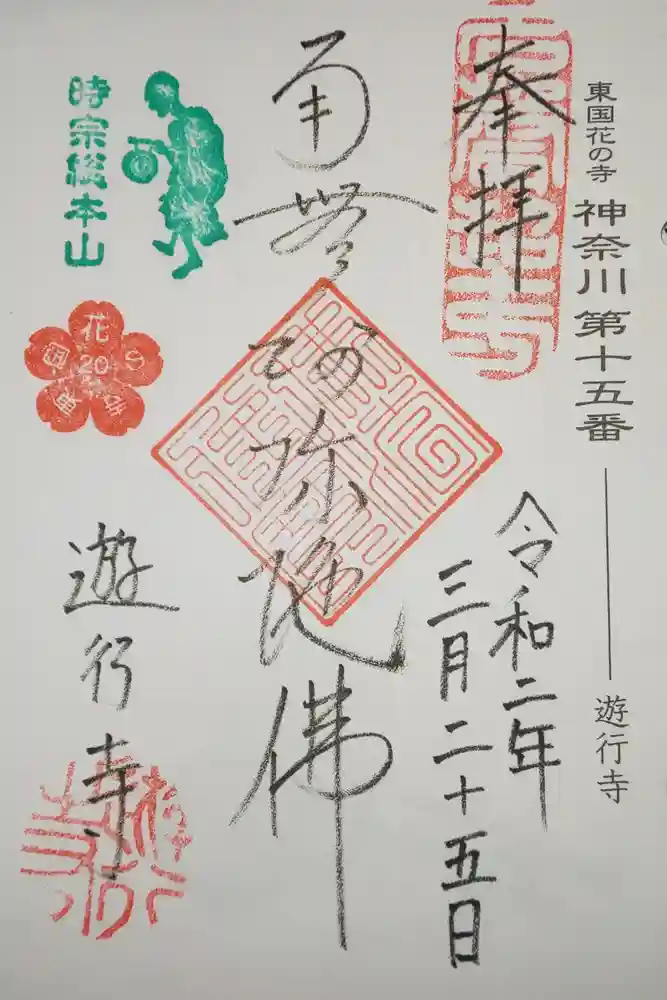 東国花の寺 神奈川第十五番 遊行寺
奉拝
令和二年
三月二十五日
南無阿弥陀佛
時宗総本山
花
20
遊行寺